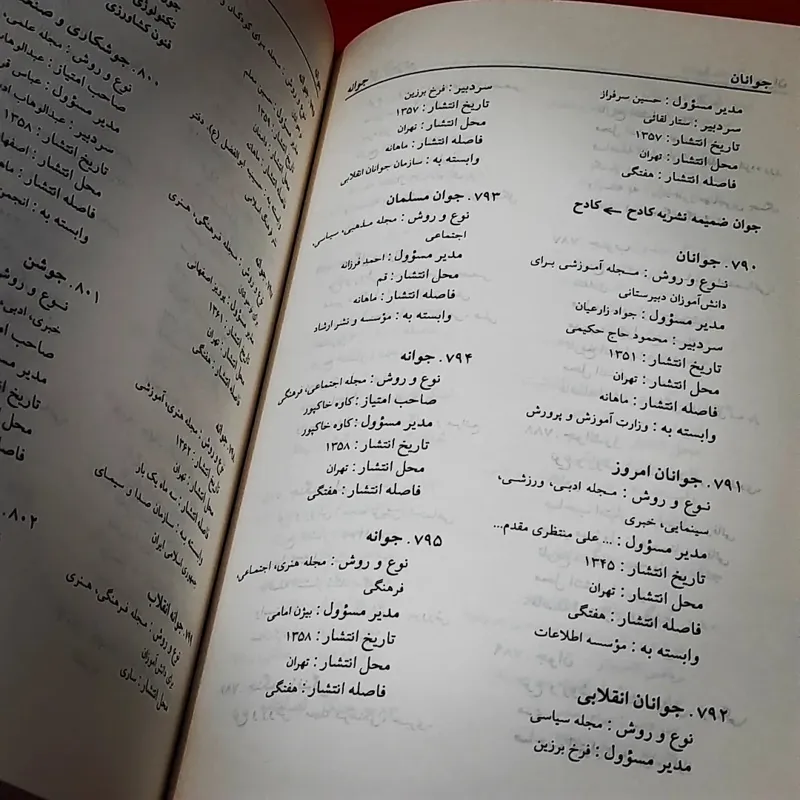 جوانان
جوانه
مدیر مسؤول : حسین سرفراز
سردبیر : ستار لقائی
تاریخ انتشار : ۱۳۵۷
محل انتشار : تهران
فاصله انتشار : هفتگی
جوان ضمیمه نشریه کادح ← کادح
۷۹۰. جوانان
نوع و روش : مجله آموزشی برای
دانش‌آموزان دبیرستانی
مدیر مسؤول : جواد زارعیان
سردبیر : محمود حاج حکیمی
تاریخ انتشار : ۱۳۵۱
محل انتشار : تهران
فاصله انتشار : ماهانه
وابسته به : وزارت آموزش و پرورش
۷۹۱. جوانان امروز
نوع و روش : مجله ادبی، ورزشی،
سینمایی، خبری
مدیر مسؤول : ... علی منتظری مقدم...
تاریخ انتشار : ۱۳۴۵
محل انتشار : تهران
فاصله انتشار : هفتگی
وابسته به : مؤسسه اطلاعات
۷۹۲. جوانان انقلابی
نوع و روش : مجله سیاسی
مدیر مسؤول : فرخ برزین
سردبیر : فرخ برزین
تاریخ انتشار : ۱۳۵۷
محل انتشار : تهران
فاصله انتشار : ماهانه
وابسته به : سازمان جوانان انقلابی
۷۹۳. جوان مسلمان
نوع و روش : مجله مذهبی، سیاسی،
اجتماعی
مدیر مسؤول : احمد فرزانه
محل انتشار : قم
فاصله انتشار : ماهانه
وابسته به : مؤسسه و نشر ارشاد
۷۹۴. جوانه
نوع و روش : مجله اجتماعی، فرهنگی
صاحب امتیاز : کاوه خاکپور
مدیر مسؤول : کاوه خاکپور
تاریخ انتشار : ۱۳۵۸
محل انتشار : تهران
فاصله انتشار : هفتگی
۷۹۵. جوانه
نوع و روش : مجله هنری، اجتماعی،
فرهنگی
مدیر مسؤول : بیژن امامی
تاریخ انتشار : ۱۳۵۸
محل انتشار : تهران
فاصله انتشار : هفتگی
نوع و روش : مجله فرهنگی، هنری
مدیر مسؤول : پرویز اصفهانی
تاریخ انتشار : ۱۳۶۱
محل انتشار : تهران
فاصله انتشار : هفتگی
جوانه
نوع و روش : مجله هنری، آموزشی
تاریخ انتشار : ۱۳۶۲
محل انتشار : تهران
فاصله انتشار : سه ماه یک بار
وابسته به : سازمان صدا و سیمای
جمهوری اسلامی ایران
۷۹۹. جوانه انقلاب
نوع و روش : مجله فرهنگی، هنری
برای دانش‌آموزان
محل انتشار : ساری
تکنولوژی
فنون کشاورزی
۸۰۰. جوشکاری و صنعت
نوع و روش : مجله علمی،
صاحب امتیاز : عبدالوهاب
مدیر مسؤول : عباس
سردبیر : عبدالوهاب
تاریخ انتشار : ۱۳۵۸
محل انتشار : اصفهان
فاصله انتشار :
وابسته به : انجمن
۸۰۱. جوشن
نوع و روش
خبری، ادبی،
صاحب
مدیر مسؤول
تاریخ انتشار
محل انتشار
فاصله
۸۰۲.